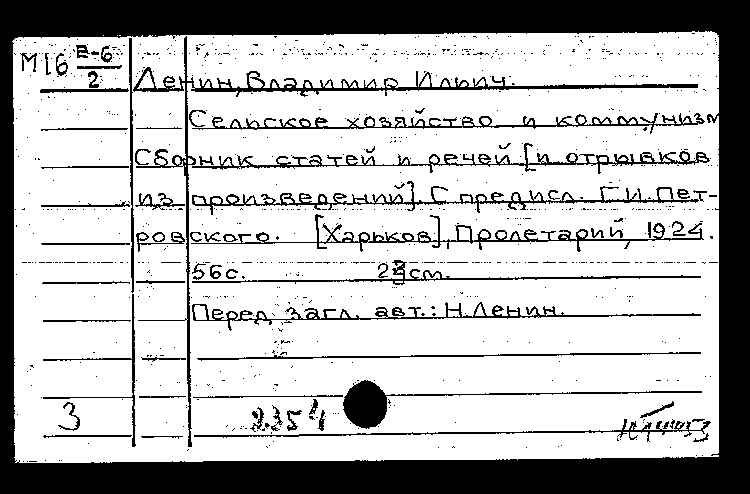 М16 Е-6/2
Ленин, Владимир Ильич.
Сельское хозяйство и коммунизм
Сборник статей и речей [и отрывков
из произведений]. С предисл. Г.И.Пет-
ровского. [Харьков], Пролетарий, 1924.
56с. см.
Перед загл. авт.: Н.Ленин.
3 2354